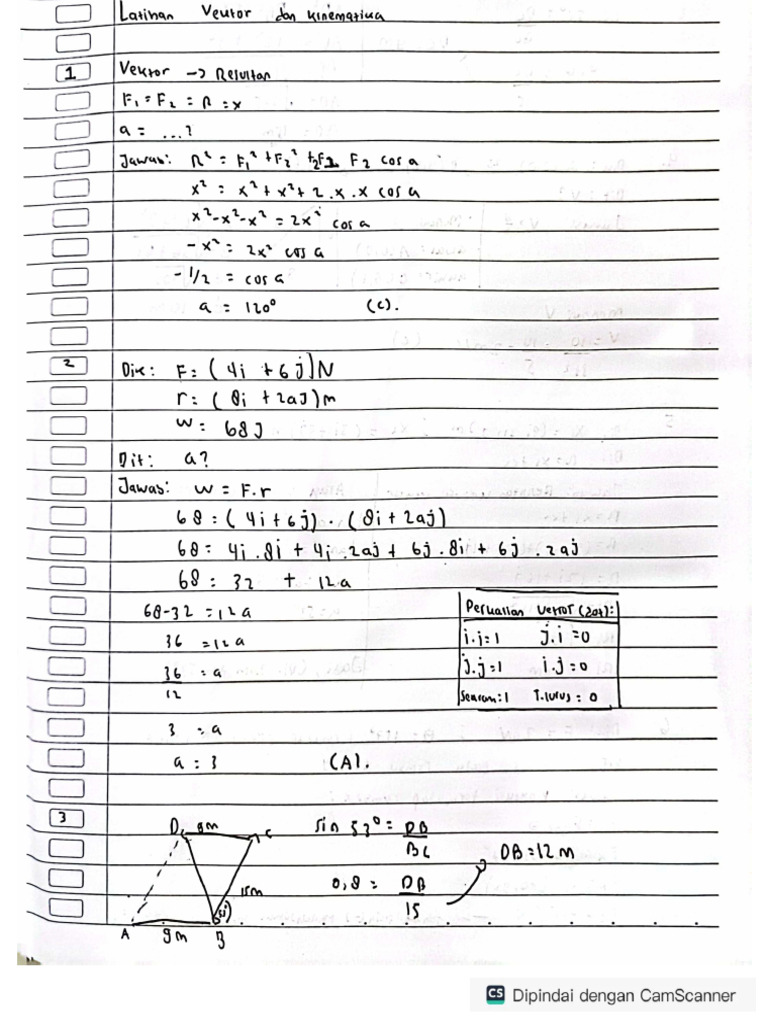 Latihan Vektor dan kinematika
1 Vektor -> Resultan
F₁ = F₂ = R = x
a = ...?
Jawab: R² = F₁² + F₂² + 2F₁ F₂ cos a
x² = x² + x² + 2 . x . x cos a
x² - x² - x² = 2x² cos a
- x² = 2x² cos a
- 1/2 = cos a
a = 120° (c).
2 Dik: F = (4i + 6j)N
r = (8i + 2aj)m
w = 68J
Dit: a?
Jawab: w = F.r
68 = (4i + 6j) . (8i + 2aj)
68 = 4i . 8i + 4i . 2aj + 6j . 8i + 6j . 2aj
68 = 32 + 12a
68-32 = 12a
36 = 12a
36/12 = a
3 = a
a = 3 (A).
Perkalian vektor (dot):
i.i = 1 j.i = 0
j.j = 1 i.j = 0
Searah: 1 T.lurus = 0
3 D 9m C
15m
53°
A 9m B
sin 53° = DB/BC
0,8 = DB/15
DB = 12 m
CS Dipindai dengan CamScanner